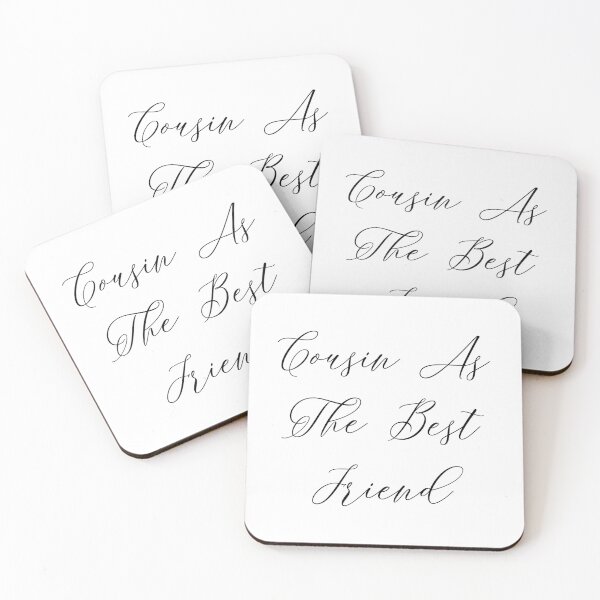 Cousin As
The Best
Cousin As
The Best
Cousin As
The Best
Friend
Cousin As
The Best
Friend